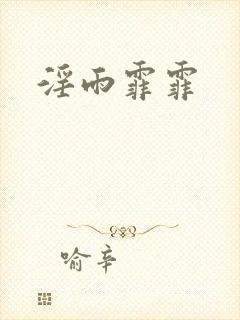 淫雨霏霏
喻辛